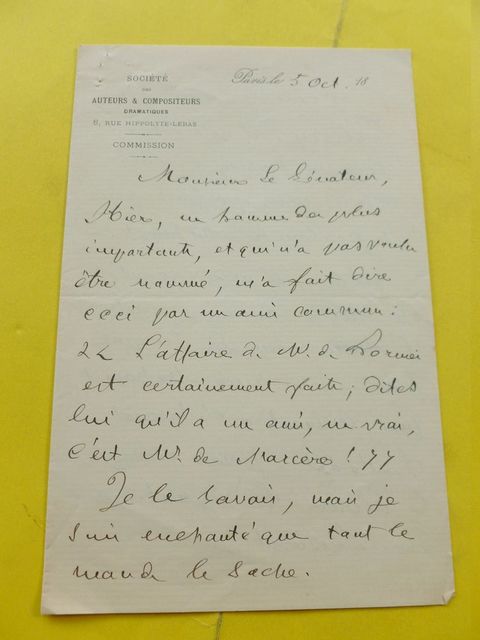 SOCIÉTÉ
DES
AUTEURS & COMPOSITEURS
DRAMATIQUES
8, RUE HIPPOLYTE-LEBAS
COMMISSION
Paris le 5 Oct. 18
Monsieur Le Sénateur,
Hier, un homme des plus
importants, et qui n'a pas voulu
être nommé, m'a fait dire
ceci par un ami commun :
« L'affaire de Mr. de Bornier
est certainement faite ; dites
lui qu'il a un ami, un vrai,
c'est Mr. de Marcère ! »
Je le savais, mais je
suis enchanté que tout le
monde le sache.